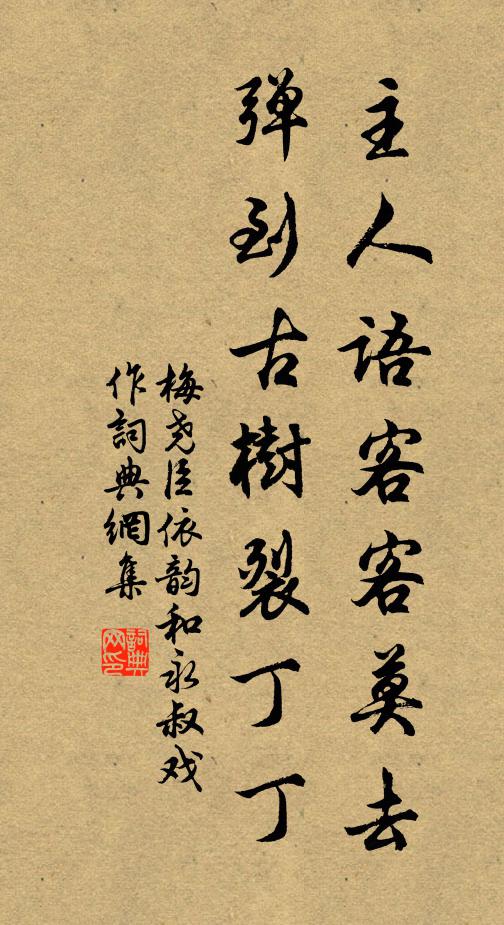 主人語客客莫去
弹到古樹裂丁丁
梅尧臣依韵和永叔戏
作詞典網集
詞典网印